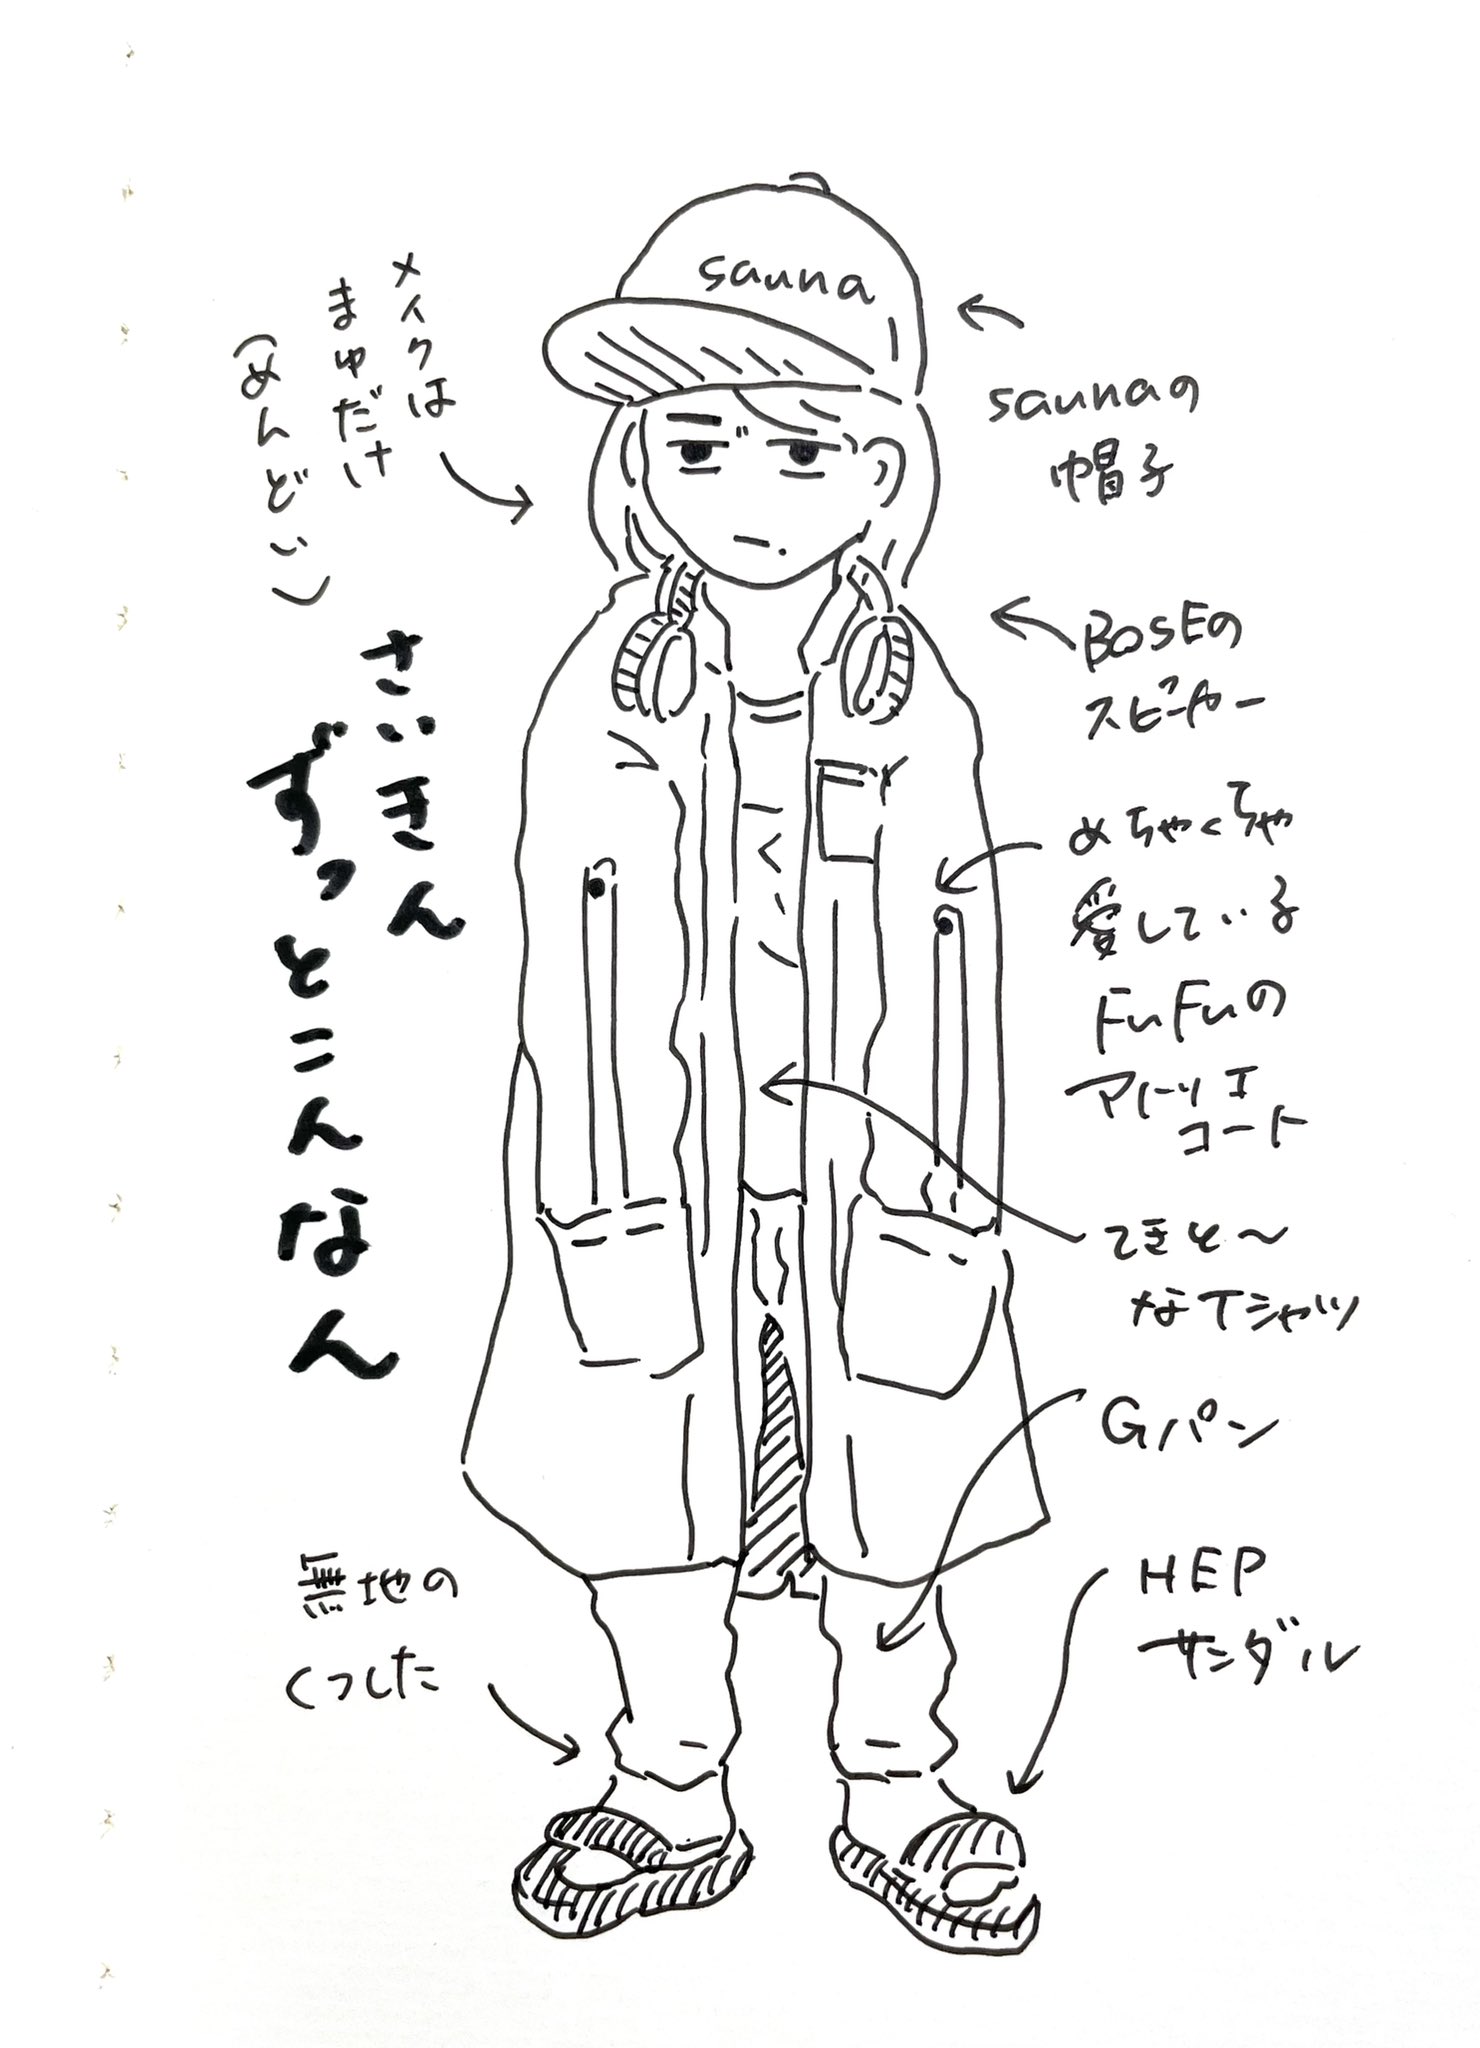 sauna
saunaの
帽子
メイクは
まゆだけ
(めんどい)
BOSEの
スピーカー
さいきん
ずっとこんなん
めちゃくちゃ
愛している
FuFuの
アトリエ
コート
てきと〜
なTシャツ
Gパン
無地の
くつした
HEP
サンダル